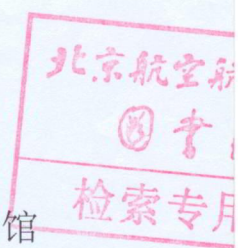 北京航空航
图书
检索专用
馆